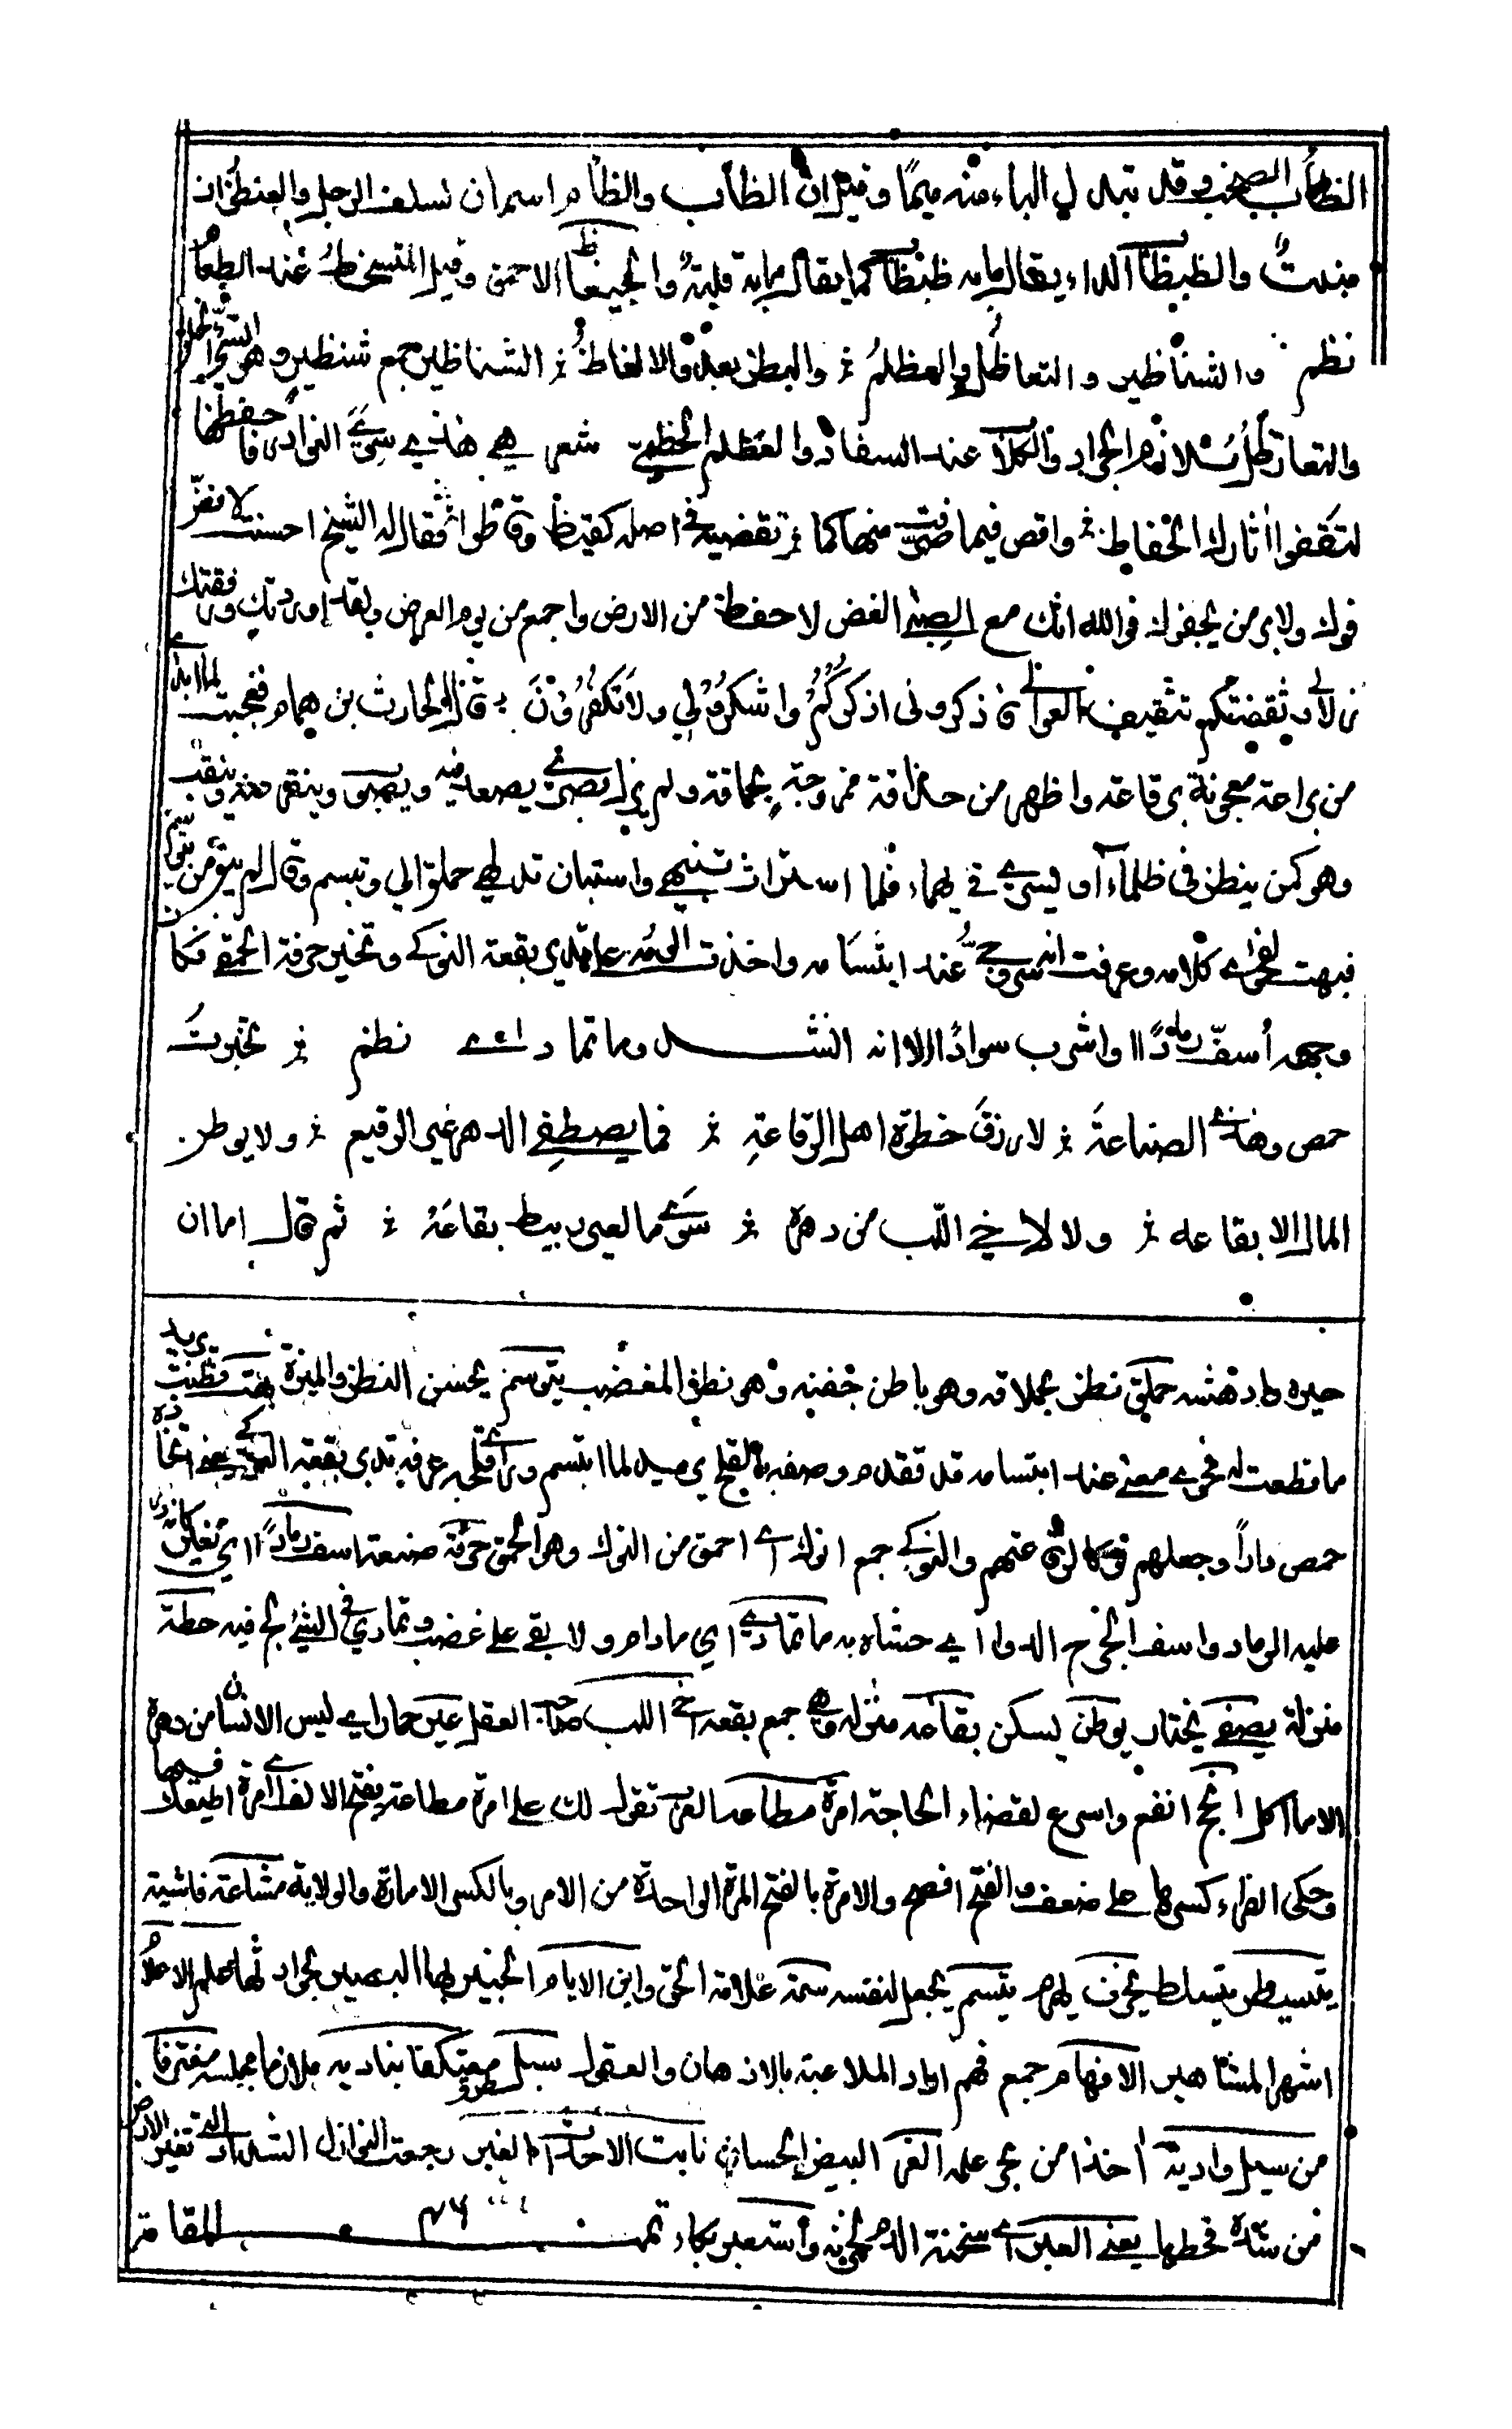 الظأب الصخب وقد تبدل الباء منه ميمًا وقيل ان الظأب والظأم اسمان لسلف الرجل والعنظوان
منبت والظبظاب الداء يقال ما به ظبظاب كما يقال ما به قلبة والجنعاظ الاحمق وقيل المتسخط عند الطعام
نظم والشناظير والتعاظل والعظلم والبظر بعد والانعاظ الشناظير جمع شنظير وهو السيئ الخلق
والتعاظل تلازم الجراد والكلاب عند السفاد والعظلم الخطمي شعر هي هذي سوى النوادر فاحفظها
لتقفوا اثارك الحفاظ واقض فيما صرفت منها كما تقضيه في اصله كقيظ وقاظوا فقال له الشيخ احسنت لا فض
فوك ولا بر من يجفوك فوالله انك مع الصبي الغض لاحفظ من الارض واجمع من يوم العرض ولقد اوردتك ورفقتك
زلالي وثقفتكم تثقيف العوالي فاذكروني اذكركم واشكروا لي ولا تكفرون قال الحارث بن همام فعجبت لما ابدى
من براعة معجونة برقاعة واظهر من حذاقة ممزوجة بحماقة ولم يزل بصري يصعد فيه ويصوب وينقر عنه وينقب
وهو كمن ينظر في ظلماء او يسري في بهماء فلما استراث تنبهي واستبان تدلهي حملق الي وتبسم وقال لم يبق من يتوسم
فبهت لفحوى كلامه وعرفت انه السروجي عند ابتسامه واخذت الومه على تديره بقعة النوكى وتخير حرفة الحمقى فكان
وجهه أسف رمادًا واشرب سوادًا الا انه انشد وما تمادى نظم تخيرت
حمص وهذي الصناعة لارزق حظوة اهل الرقاعة فما يصطفي الدهر غير الرقيع ولا يوطن
المال الا بقاعه ولا لاخي اللب من دهره سوى ما لعير ربيط بقاعة ثم قال اما ان
حيره دهشه حملق نظر بحملاقه وهو باطن جفنه وهو نظر المغضب يتوسم يحسن النظر والميزة بهت فظنت يريد
ما نطقت له فحوى معنى عند ابتسامه قد تقدم وصفه بالقلح يريد لما ابتسم ورأى قلحه عرفه تديره بقعة النوكى يعني اتخاذه
حمص دارًا وجعلهم والنوكى جمع انوك اي احمق من النوك وهو الحمق حرفة صنعة اسف رمادًا اي تغير كانه ذر
عليه الرماد واسف الجرح الدواء اي حشاه به ما تمادى اي ما دام ولا بقي على غضب وتمادى في الشيء لج فيه حظوة
منزلة يصطفي يختار يوطن يسكن بقاعه منزله وهي جمع بقعة اخي اللب صاحب العقل عير حمار اي ليس الانسان من دهره
الا ما اكل انجح انفع واسرع لقضاء الحاجة امرة مطاعة العرب تقول لك على امرة مطاعة بفتح الالف اي امرة اطيعك فيها
وحكى الفراء كسرها على ضعف والفتح افصح والامرة بالفتح المرة الواحدة من الامر وبالكسر الامارة والولاية مشاعة فاشية
يتسيطر يتسلط يخرف يهرم يتسم يجعل لنفسه سمة علامة الحق وابن الايام الخبير بها البصير بحوادثها علم الاعلام
اشهر المشاهير الافهام جمع فهم اراد الملاعبة بالاذهان والعقول سبيل طريق معتكفا بناديه ملازما مجلسه مغترفا
من سيل واديه أخذا من بحر علمه الغر البيض الحسان نابت الاحداث الغبر رجعت النوازل الشداد التي تغبر الارض
من شدة قحطها يعني العبر اي سخنة الدمع لحزنه وأستعبر بكاء تمت المقامة ٤٦